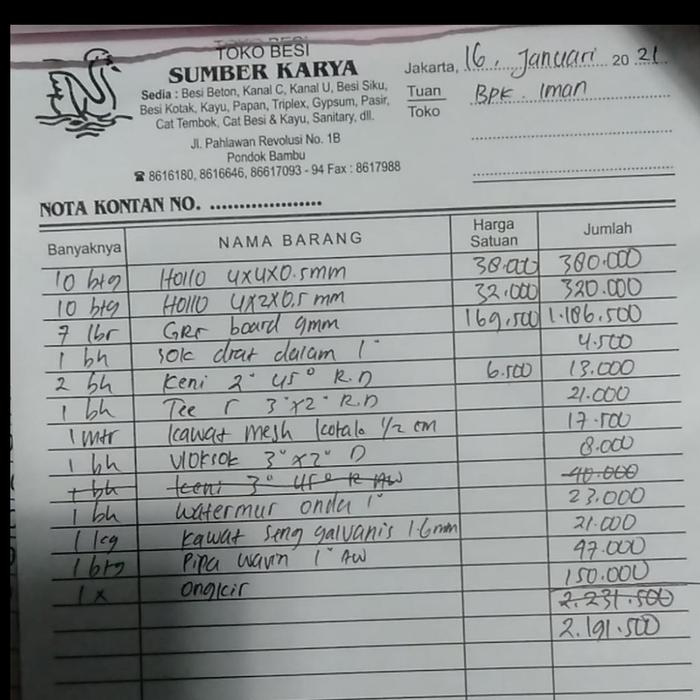 TOKO BESI
SUMBER KARYA
Sedia : Besi Beton, Kanal C, Kanal U, Besi Siku,
Besi Kotak, Kayu, Papan, Triplex, Gypsum, Pasir,
Cat Tembok, Cat Besi & Kayu, Sanitary, dll.
Jl. Pahlawan Revolusi No. 1B
Pondok Bambu
☎ 8616180, 8616646, 86617093 - 94 Fax : 8617988
Jakarta, 16, Januari 20 21
Tuan BPK. Iman
Toko
NOTA KONTAN NO. ....................
Banyaknya NAMA BARANG Harga Satuan Jumlah
10 btg Hollo 4x4x0.5mm 38.000 380.000
10 btg Hollo 4x2x0,5 mm 32.000 320.000
7 lbr GRC board 9mm 169,500 1.186.500
1 bh sok drat dalam 1" 4.500
2 bh Keni 2" 45° R.D 6.500 13.000
1 bh Tee r 3"x2" R.D 21.000
1 mtr kawat mesh kotak 1/2 cm 17.500
1 bh Vloksok 3"x2" D 8.000
1 bh Keni 3" 45° R AW 40.000
1 bh watermur onda 1" 23.000
1 kg kawat seng galvanis 1.6mm 21.000
1 btg Pipa wavin 1" AW 47.000
1 x Ongkir 150.000
2.231.500
2.191.500